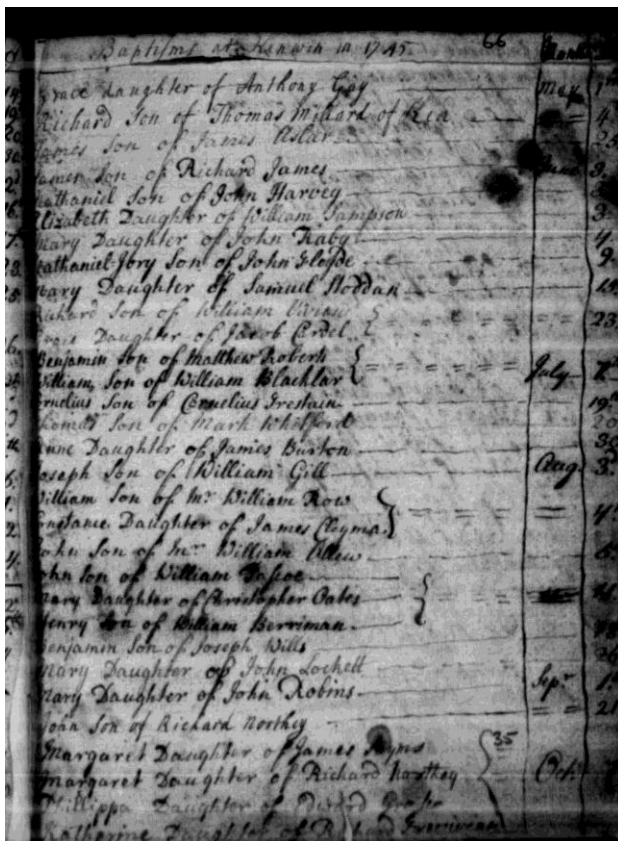 Baptisms at Kenwin in 1745. 66
Grace Daughter of Anthony Gay May 1
Richard Son of Thomas Millard of Kea 4
James Son of James 25
James Son of Richard James June 3
Nathaniel Son of John Harvey
Elizabeth Daughter of William Sampson 3
Mary Daughter of John Raby 4
Nathaniel Jory Son of John Floyde 9
Mary Daughter of Samuel Hoddan
Richard Son of William Vivian 23
Daughter of Jacob Cardel
Benjamin Son of Matthew Roberts
William Son of William Blachlar July
Cornelius Son of Cornelius 19
Thomas Son of Mark Whitford 20
Anne Daughter of James Burton 30
Joseph Son of William Gill Aug. 3
William Son of Mr. William Row
Constance Daughter of James Clyma 4
John Son of Mr. William Allen 6
John Son of William
Mary Daughter of Christopher Oates
Henry Son of William Berriman
Benjamin Son of Joseph Wills
Mary Daughter of John Lockett
Mary Daughter of John Robins Sepr. 1
John Son of Richard Northey 21
Margaret Daughter of James 35
Margaret Daughter of Richard Northey Oct.
Phillippa Daughter of
Katherine Daughter of Richard